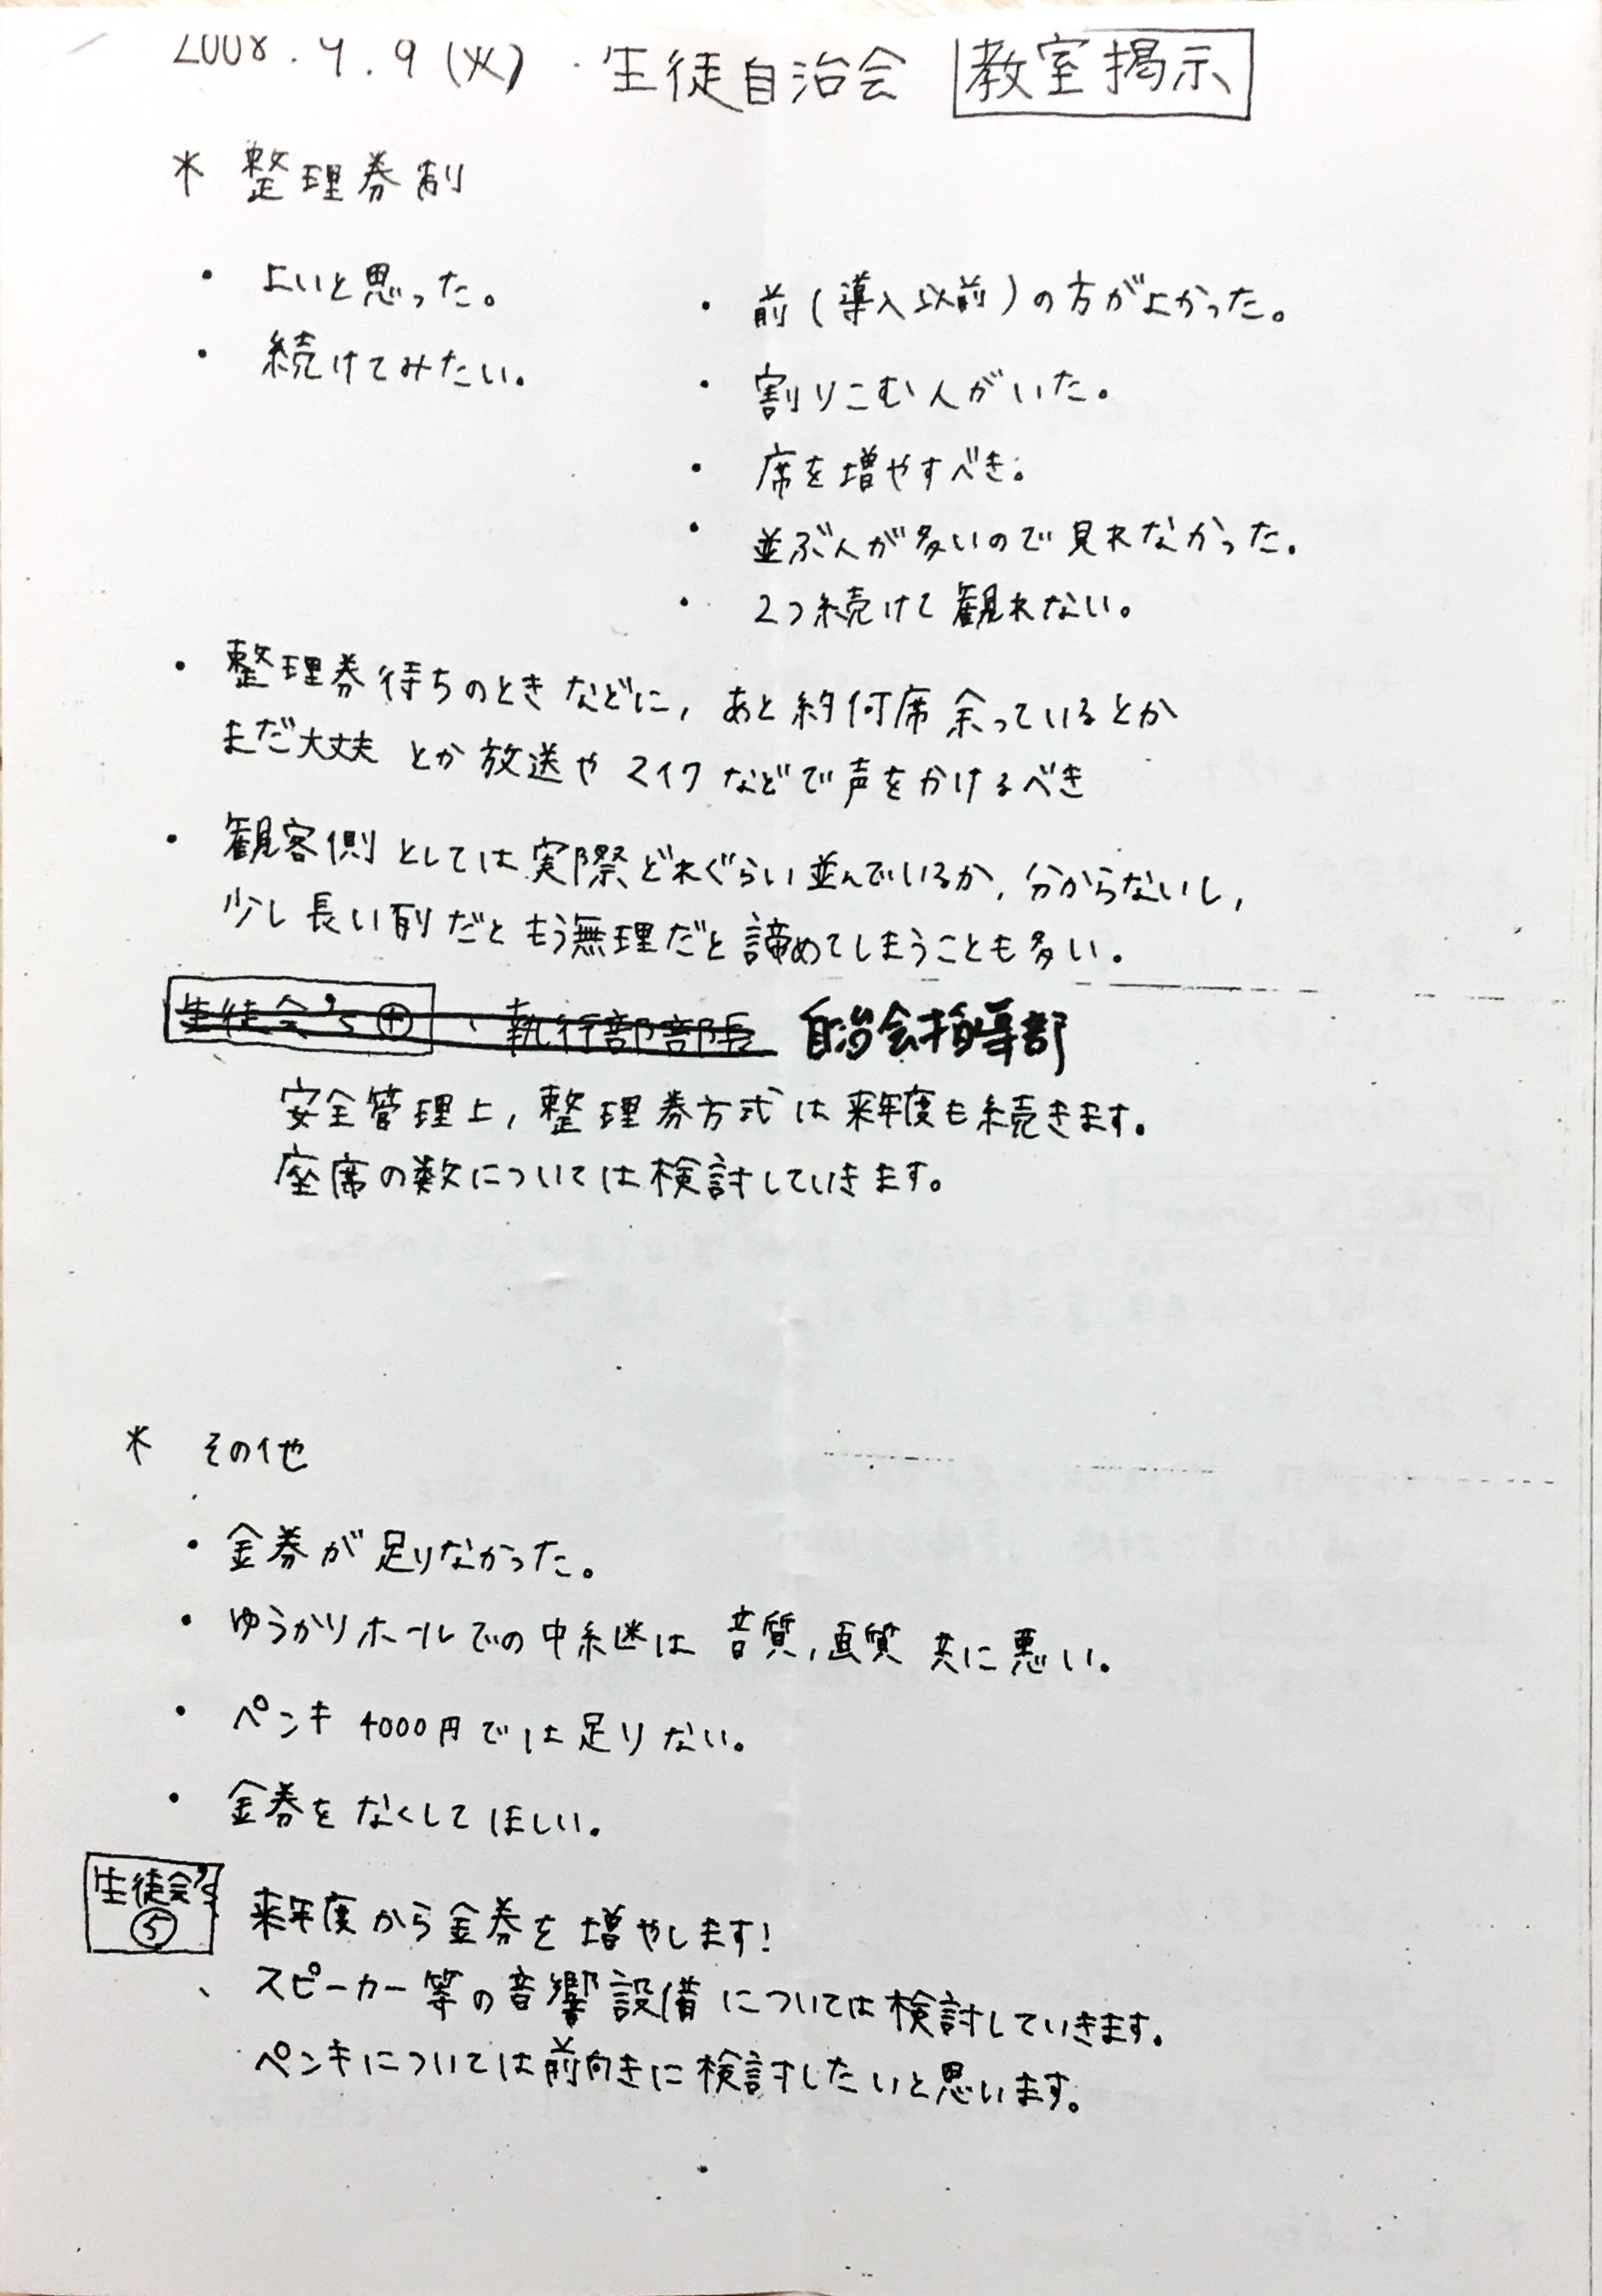 2008.4.9(火)・生徒自治会 教室掲示
* 整理券制
・よいと思った。
・続けてみたい。
・前(導入以前)の方がよかった。
・割りこむ人がいた。
・席を増やすべき。
・並ぶ人が多いので見れなかった。
・2つ続けて観れない。
・整理券待ちのときなどに,あと約何席余っているとか
まだ大丈夫とか放送やマイクなどで声をかけるべき
・観客側としては実際どれぐらい並んでいるか,分からないし,
少し長い列だともう無理だと諦めてしまうことも多い。
生徒会's④、執行部部長 自治会指導部
安全管理上,整理券方式は来年度も続きます。
座席の数については検討していきます。
* その他
・金券が足りなかった。
・ゆうかりホールでの中継は音質,画質共に悪い。
・ペンキ4000円では足りない。
・金券をなくしてほしい。
生徒会's
⑤
来年度から金券を増やします!
、スピーカー等の音響設備については検討していきます。
ペンキについては前向きに検討したいと思います。